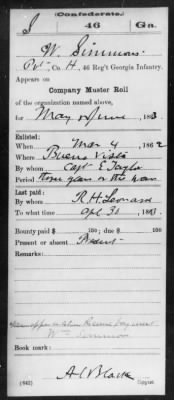 (Confederate.)
S 46 Ga.
W. Simmons
Pvt., Co. H, 46 Reg't Georgia Infantry.
Appears on
Company Muster Roll
of the organization named above,
for May & June, 1863.
Enlisted:
When Mar 4, 1862
Where Buena Vista
By whom Capt E Taylor
Period three years or the war
Last paid:
By whom R. H. Leonard
To what time Apl 30, 1863.
Bounty paid $ 100; due $ 100
Present or absent Present
Remarks:
Wm Simmons
Book mark:
(642) Copyist.